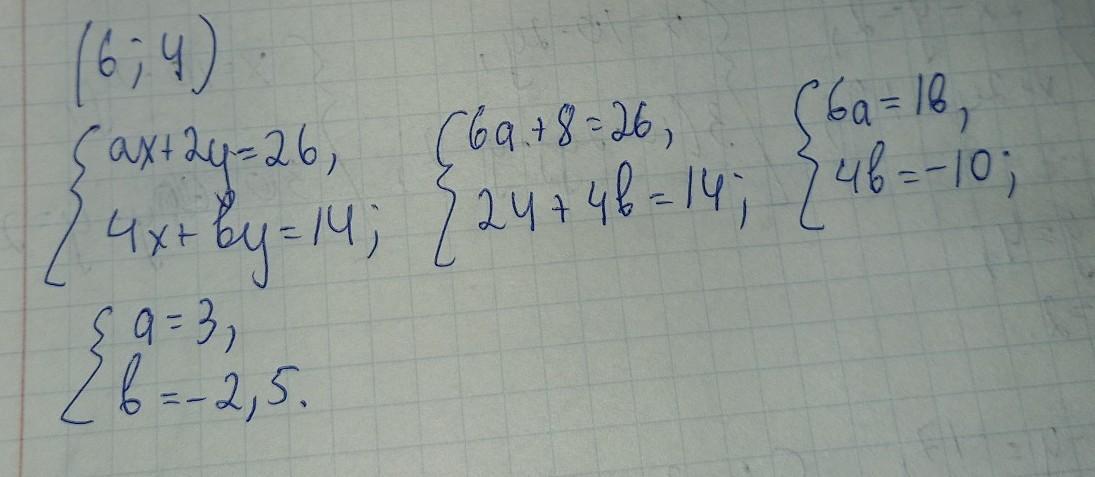 (6; 4)
{ax+2y=26,
4x+by=14;
{6a+8=26,
24+4b=14;
{6a=18,
4b=-10;
{a=3,
b=-2,5.